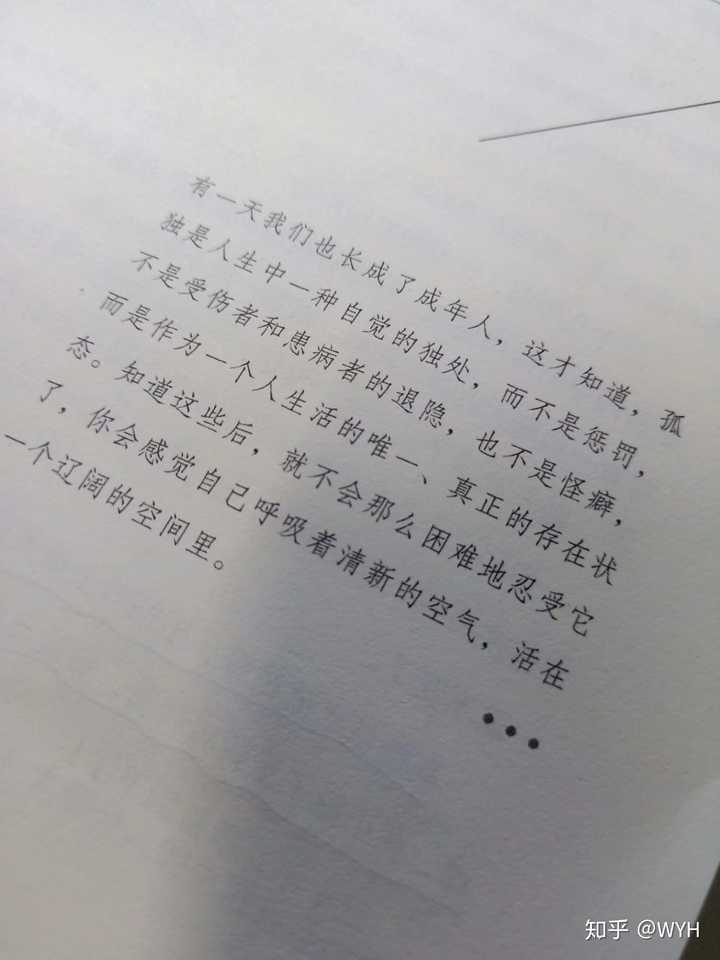 有一天我们也长成了成年人，这才知道，孤
独是人生中一种自觉的独处，而不是惩罚，
不是受伤者和患病者的退隐，也不是怪癖，
而是作为一个人生活的唯一、真正的存在状
态。知道这些后，就不会那么困难地忍受它
了，你会感觉自己呼吸着清新的空气，活在
一个辽阔的空间里。
●●●
知乎 @WYH